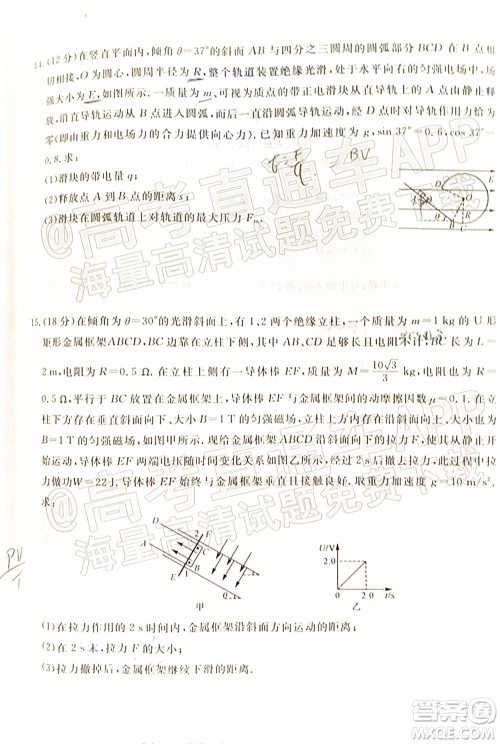 14.(12分)在竖直平面内,倾角θ=37°的斜面AB与四分之三圆周的圆弧部分BCD在B点相
切相接,O为圆心,圆周半径为R,整个轨道装置绝缘光滑,处于水平向右的匀强电场中,场
强大小为E,如图所示.一质量为m、可视为质点的带正电滑块从直导轨上的A点由静止释
放,沿直导轨运动从B点进入圆弧,沿圆弧导轨运动,在经过D点时对导轨作用力恰为
零(即由重力和电场力的合力提供向心力).已知重力加速度为g,sin 37°=0.6,cos 37°=
0.8.求:
(1)滑块的带电量q;
(2)释放点A到B点的距离s;
(3)滑块在圆弧轨道上对轨道的最大压力Fm.
BV
A
B
C
D
O
R
E
15.(18分)在倾角为θ=30°的光滑斜面上,有1、2两个绝缘立柱,一个质量为m=1 kg的U形
矩形金属框架ABCD,BC边紧靠在立柱下侧,金属框架足够长且电阻不计,BC长为L=
2 m,电阻为0.5 Ω.在立柱上侧有一导体棒EF,质量为M=10√3/3 kg,电阻为
0.5 Ω,平行于BC放置在金属框架上,导体棒EF与金属框架间的动摩擦因数μ=0.1.在立
柱下方存在垂直斜面向下,B=1 T的匀强磁场,立柱上方存在沿斜面向上,大小也为B=
1 T的匀强磁场.现在金属框架ABCD沿斜面向下的拉力F作用下,使其从静止开始
运动,导体棒EF两端电压随时间变化关系如图乙所示,2 s后撤去拉力,此过程中拉
力做功W=22 J,导体棒EF始终与金属框架垂直且接触良好,取重力加速度g=10 m/s².
求:
D
F
C
2
1
A
B
E
甲
U/V
2.0
0
2.0
t/s
乙
PV
(1)在拉力作用的2 s时间内,金属框架沿斜面方向运动的距离;
(2)在2 s末,拉力F的大小;
(3)拉力撤掉后,金属框架继续下滑的距离.
@高考直通车APP
海量高清试题免费下载
@高考直通车APP
海量高清试题免费下载
答案圈
MXQE.COM